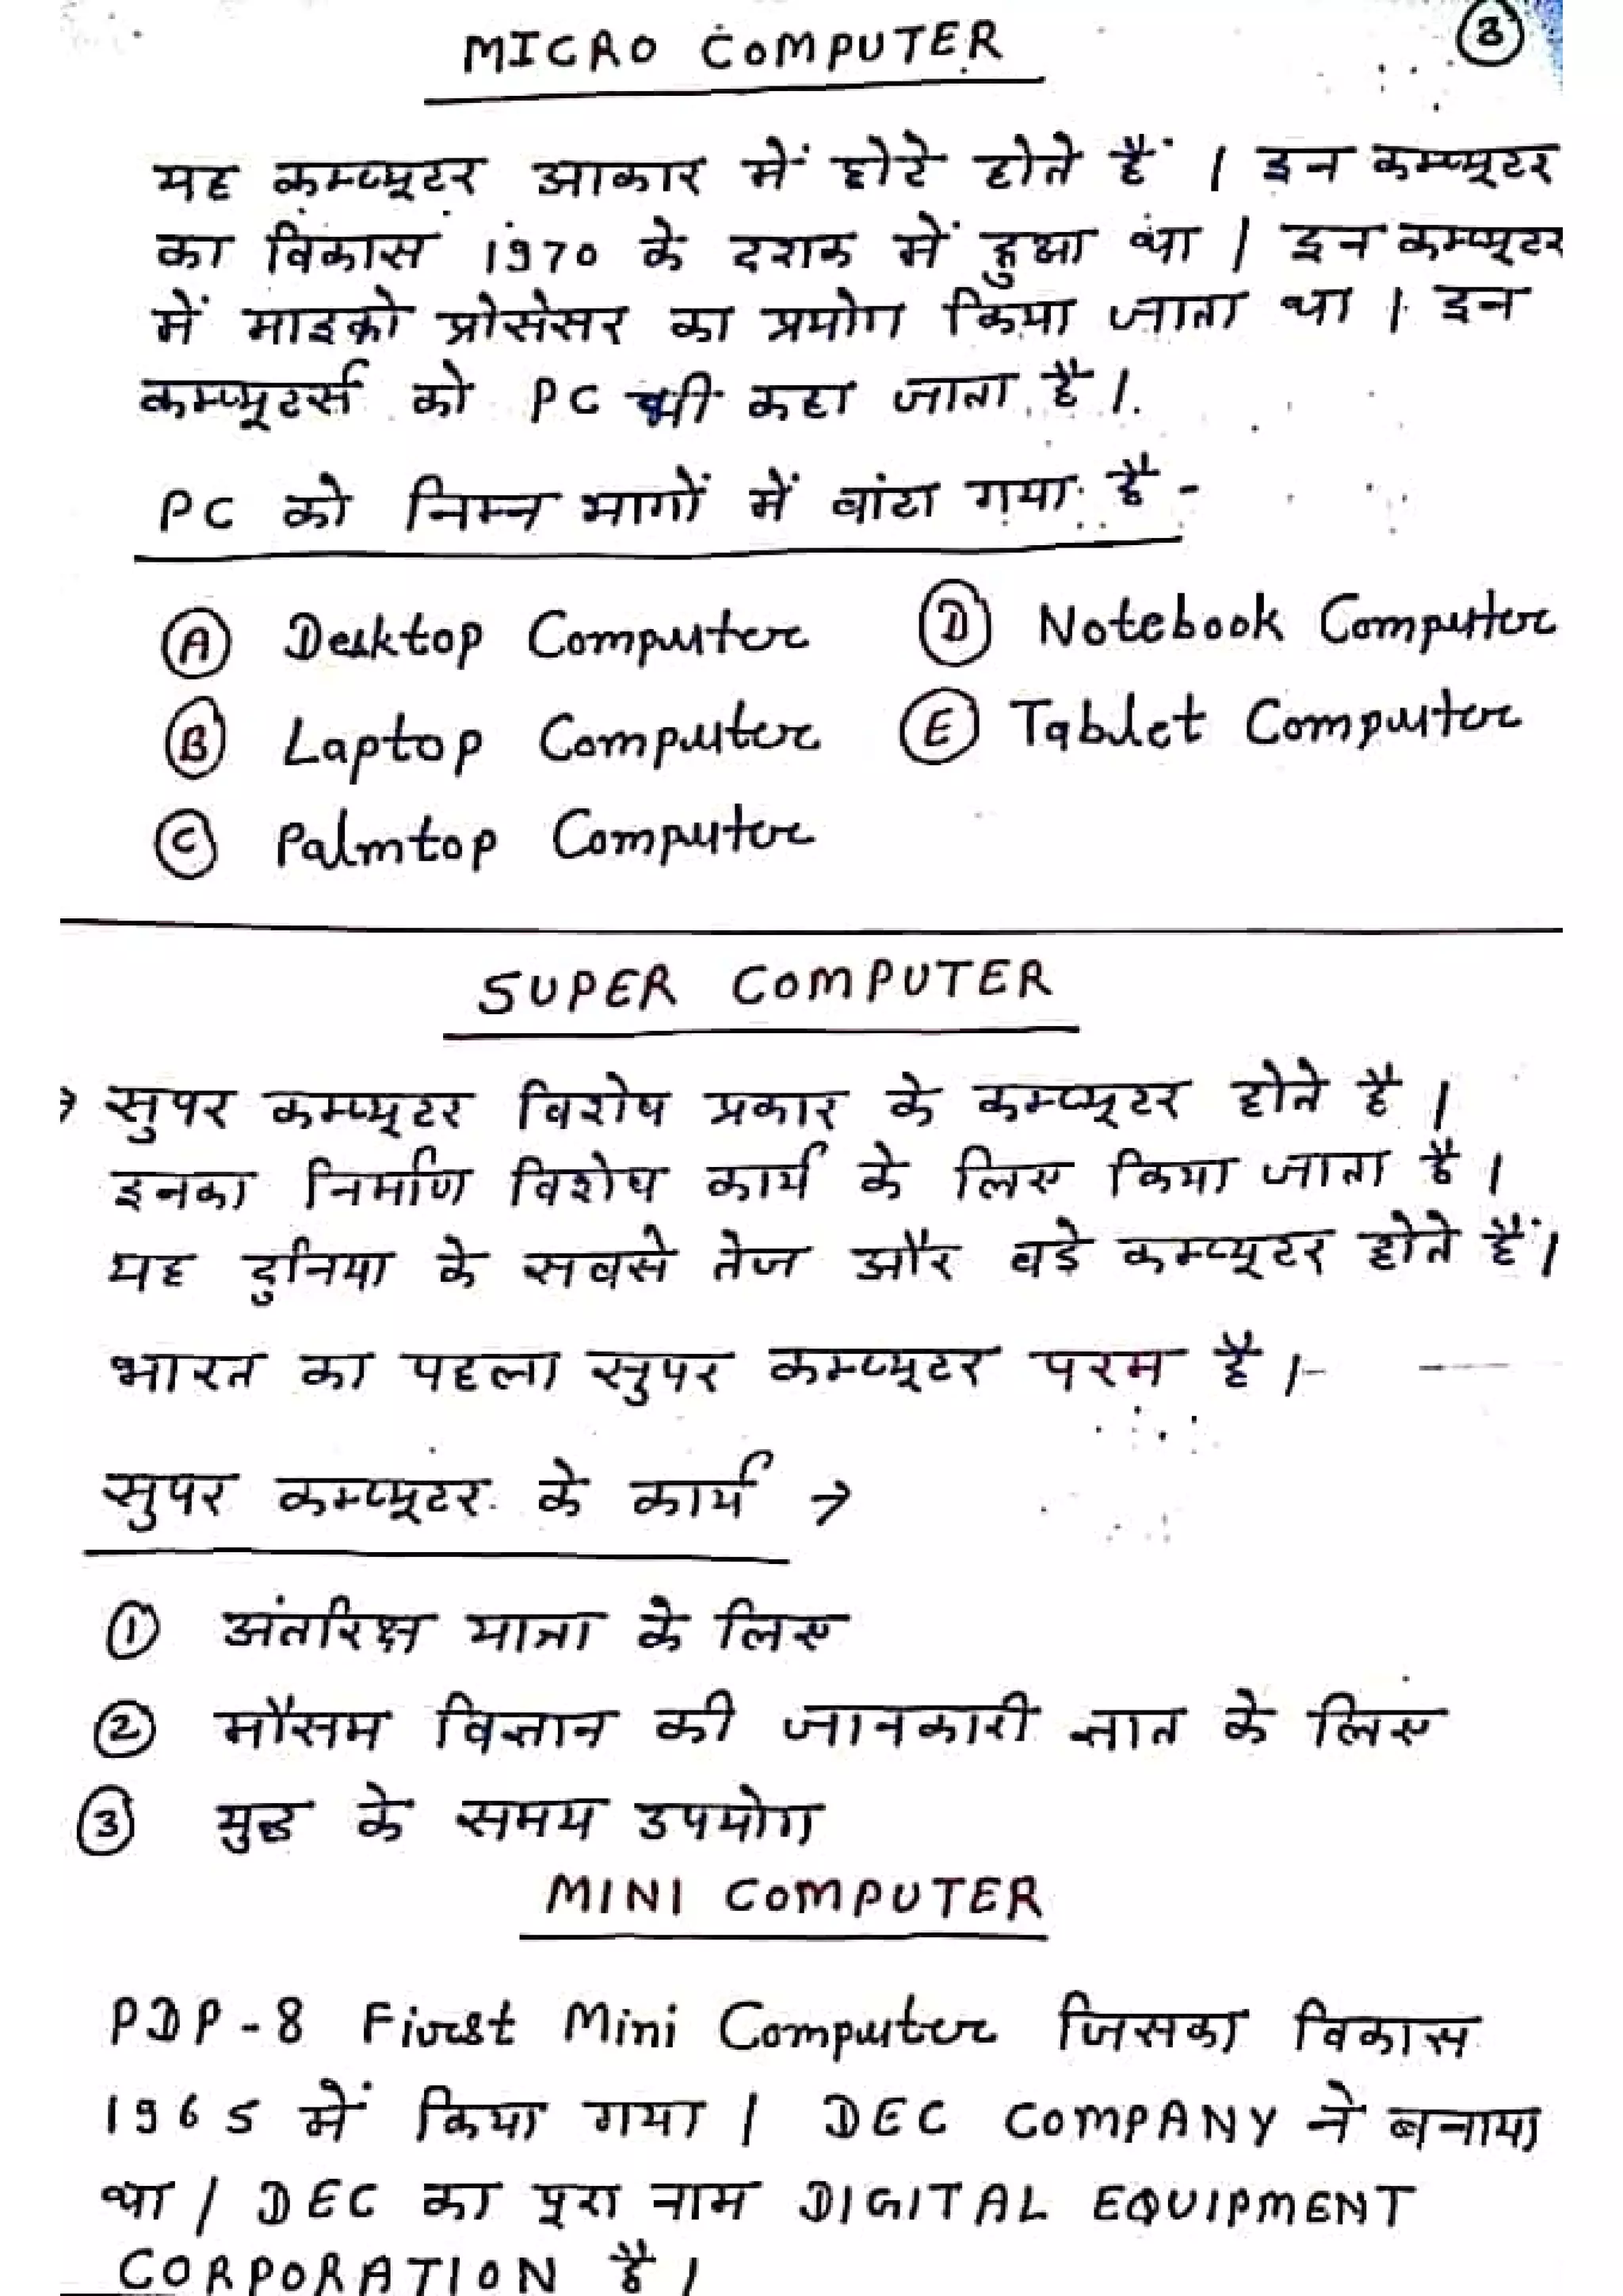 3
MICRO COMPUTER
यह कम्प्यूटर आकार में छोटे होते हैं । इन कम्प्यूटर
का विकास 1970 के दशक में हुआ था । इन कम्प्यूटर
में माइक्रो प्रोसेसर का प्रयोग किया जाता था । इन
कम्प्यूटर्स को PC भी कहा जाता है ।
PC को निम्न भागों में वांटा गया है -
A Desktop Computer
B Laptop Computer
C Palmtop Computer
D Notebook Computer
E Tablet Computer
SUPER COMPUTER
→ सुपर कम्प्यूटर विशेष प्रकार के कम्प्यूटर होते है ।
इनका निर्माण विशेष कार्य के लिए किया जाता है ।
यह दुनिया के सबसे तेज और वडे कम्प्यूटर होते हैं।
भारत का पहला सुपर कम्प्यूटर परम है ।-
सुपर कम्प्यूटर के कार्य →
1 अंतरिक्ष यात्रा के लिए
2 मौसम विज्ञान की जानकारी ज्ञात के लिए
3 युद्ध के समय उपयोग
MINI COMPUTER
PDP-8 First Mini Computer जिसका विकास
1965 में किया गया । DEC COMPANY ने बनाया
था । DEC का पूरा नाम DIGITAL EQUIPMENT
CORPORATION है ।